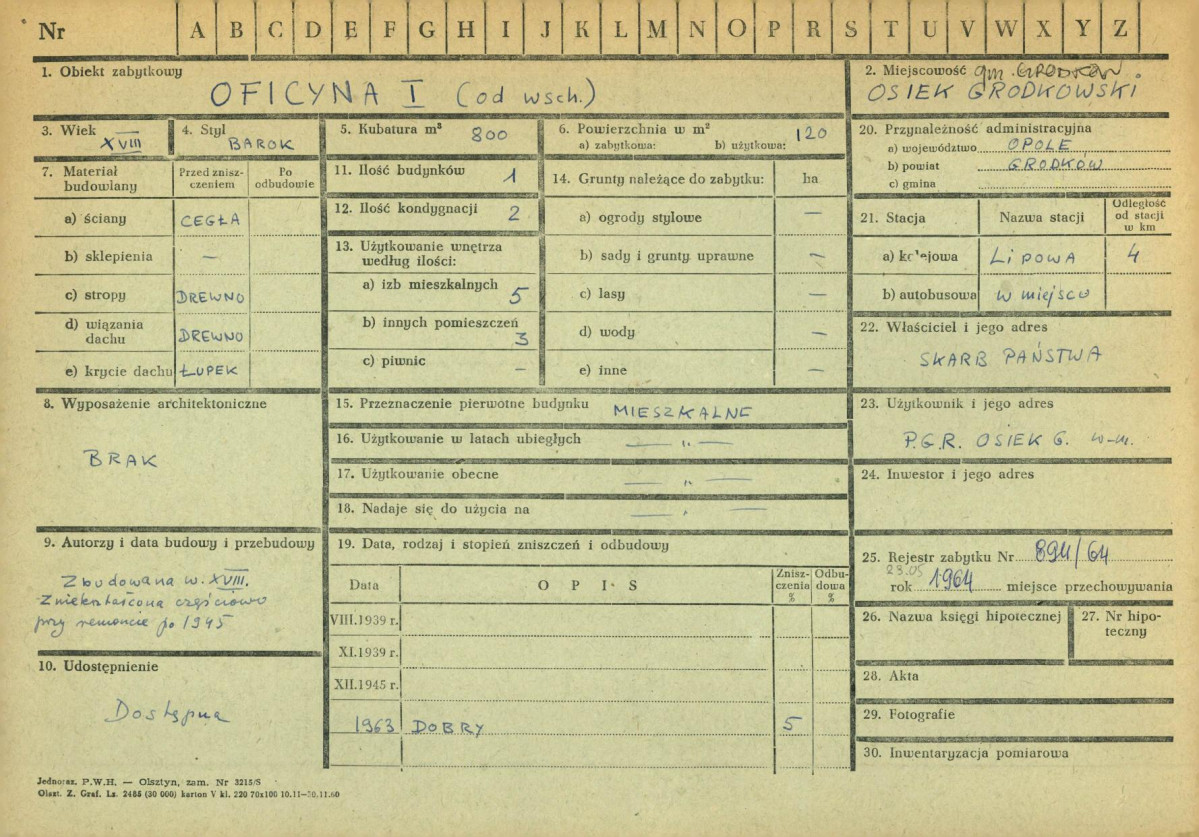 Nr A B C D E F G H I J K L M N O P R S T U V W X Y Z
1. Obiekt zabytkowy
OFICYNA I (od wsch.)
2. Miejscowość gm. GRODKÓW.
OSIEK GRODKOWSKI
3. Wiek
XVIII
4. Styl
BAROK
5. Kubatura m³ 800
6. Powierzchnia w m²
a) zabytkowa: b) użytkowa: 120
7. Materiał budowlany
Przed zniszczeniem
Po odbudowie
a) ściany CEGŁA
b) sklepienia —
c) stropy DREWNO
d) wiązania dachu DREWNO
e) krycie dachu ŁUPEK
8. Wyposażenie architektoniczne
BRAK
9. Autorzy i data budowy i przebudowy
Zbudowana w. XVIII.
Zniekształcona częściowo
przy remoncie po 1945
10. Udostępnienie
Dostępna
11. Ilość budynków 1
12. Ilość kondygnacji 2
13. Użytkowanie wnętrza
według ilości:
a) izb mieszkalnych 5
b) innych pomieszczeń 3
c) piwnic —
14. Grunty należące do zabytku: ha
a) ogrody stylowe —
b) sady i grunty uprawne —
c) lasy —
d) wody —
e) inne —
15. Przeznaczenie pierwotne budynku MIESZKALNE
16. Użytkowanie w latach ubiegłych — „ —
17. Użytkowanie obecne — „ —
18. Nadaje się do użycia na — „ —
19. Data, rodzaj i stopień zniszczeń i odbudowy
Data OPIS Zniszczenia % Odbudowa %
VIII.1939 r.
XI.1939 r.
XII.1945 r.
1963 DOBRY 5
20. Przynależność administracyjna
a) województwo OPOLE
b) powiat GRODKÓW
c) gmina
21. Stacja Nazwa stacji Odległość od stacji w km
a) kolejowa LIPOWA 4
b) autobusowa w miejscu
22. Właściciel i jego adres
SKARB PAŃSTWA
23. Użytkownik i jego adres
P.G.R. OSIEK G. w-m.
24. Inwestor i jego adres
25. Rejestr zabytku Nr 894/64
23.05
rok 1964 miejsce przechowywania
26. Nazwa księgi hipotecznej
27. Nr hipoteczny
28. Akta
29. Fotografie
30. Inwentaryzacja pomiarowa
Jednoraz. P.W.H. — Olsztyn, zam. Nr 3215/S
Olszt. Z. Graf. Lz. 2485 (30 000) karton V kl. 220 70x100 10.11—30.11.60